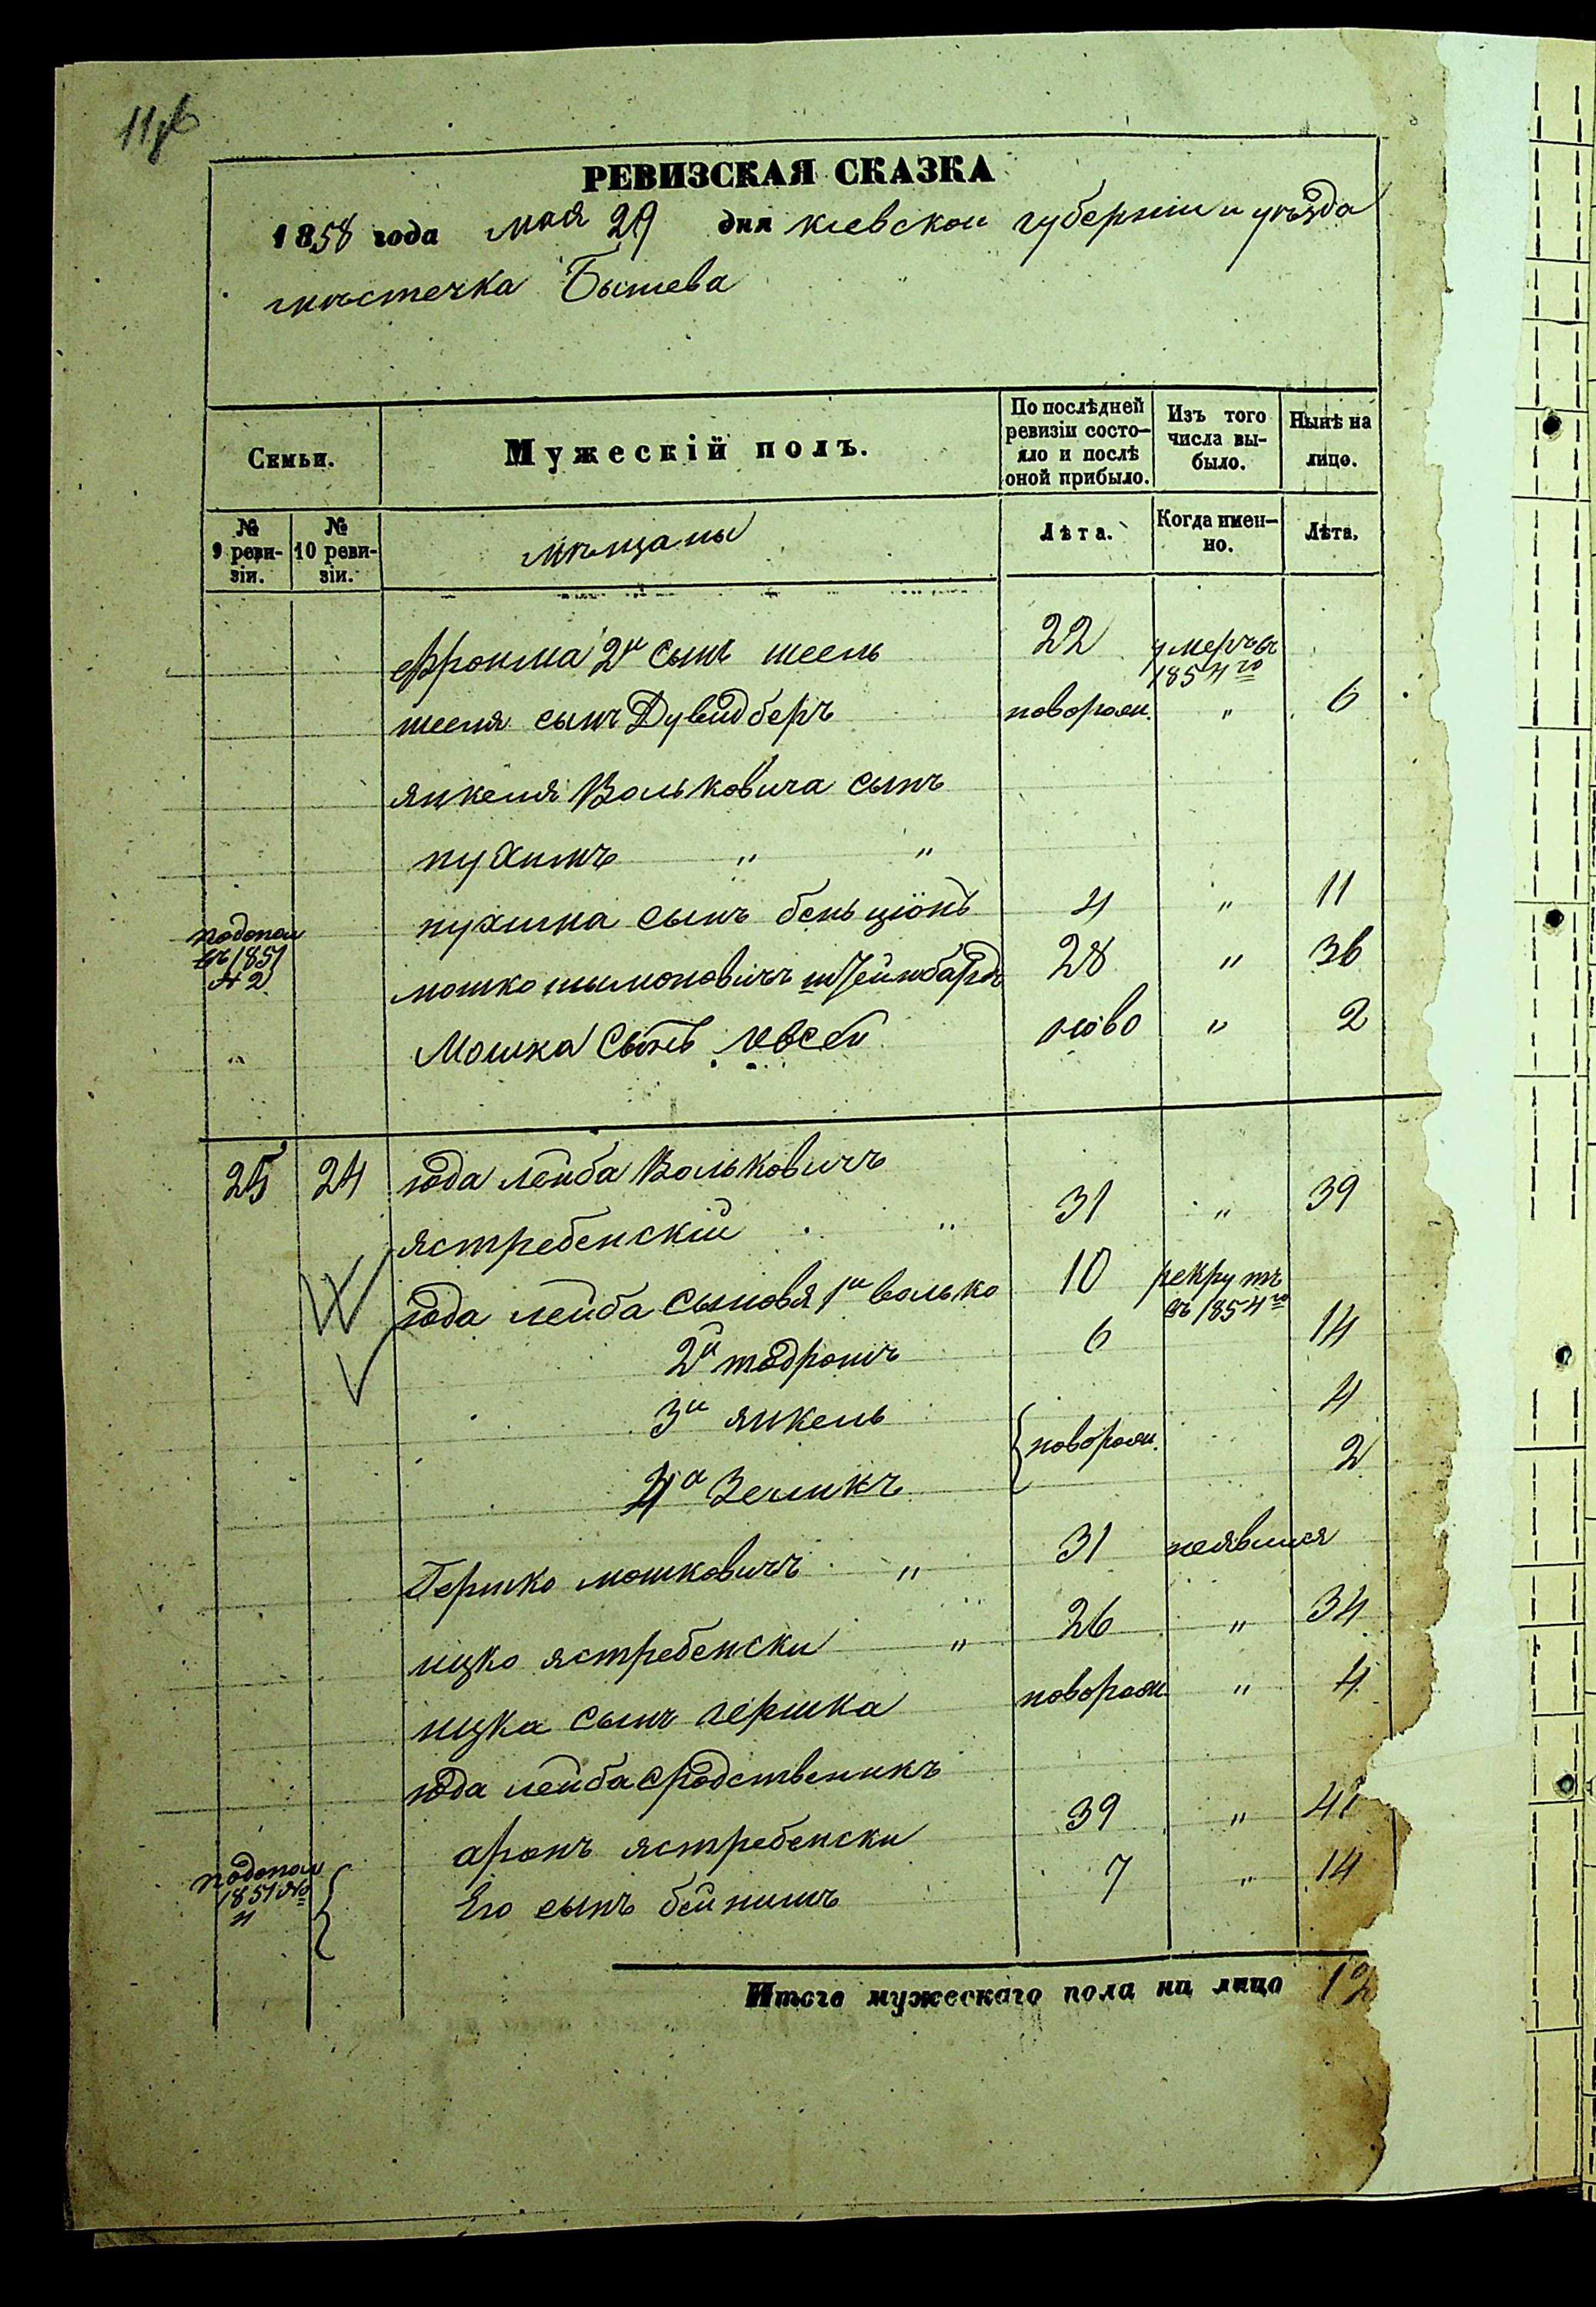 РЕВИЗСКАЯ СКАЗКА
1858 года мая 29 дня киевской губернии и уѣзда
мѣстечка Бышева
Семьи.
Мужескій полъ.
По послѣдней ревизіи состояло и послѣ оной прибыло.
Изъ того числа выбыло.
Нынѣ на лицо.
№ 9 ревизіи.
№ 10 ревизіи.
мѣщаны
Лѣта.
Когда именно.
Лѣта.
Фроима 2й сынъ шеель 22 умеръ въ 1854го
шееля сынъ Дувидберъ новорожд. " 6
янкеля Вольковича сынъ
нухимъ " "
нухима сынъ беньціонъ 4 " 11
1851
мошко шымоновичъ штейнбардъ 28 " 36
" Мошка сынъ иовсей ново " 2
25 24 юда лейба Вольковичъ
ястребенскій " 31 " 39
юда лейба сыновя 1й волько 10 рекрутъ въ 1854го
2й тодросъ 6 14
3й янкель 4
новорожд.
4й Зеликъ 2
Гершко мошковичъ " 31 неявился
ицко ястребенски " 26 " 34
ицка сынъ гершка новорожд " 4
юда лейба сродственикъ
аронъ ястребенски 39 "
1851 №
Его сынъ бейнишъ 7 " 14
Итого мужескаго пола на лицо 12